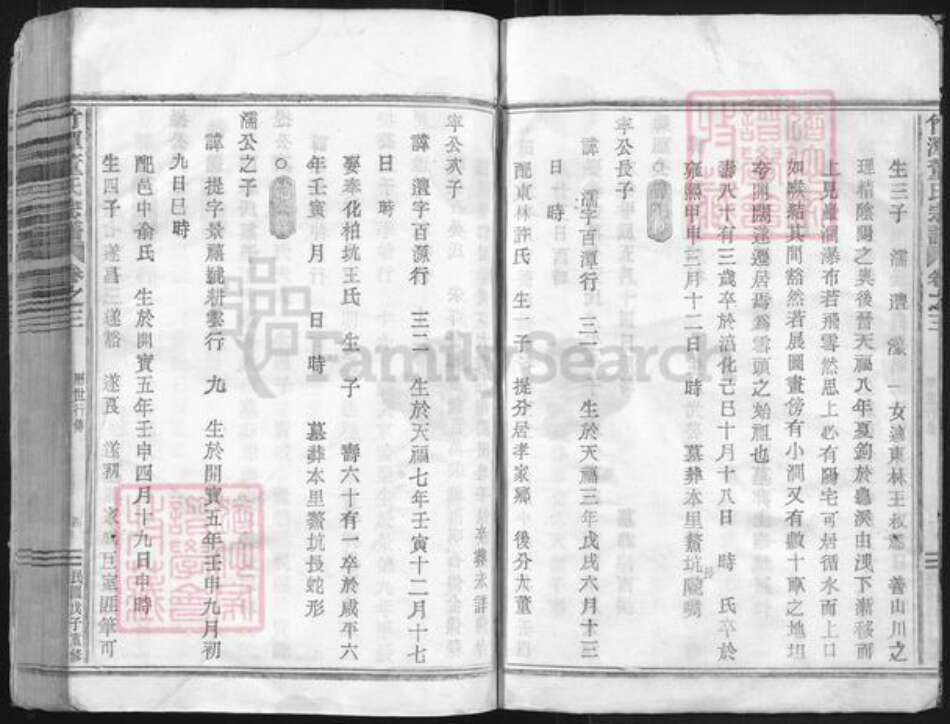 生三子 濡 澧 濠 一女適東林王 善山川之
理精陰陽之奧後晉天福八年夏釣於 溪由淺下漸移而
上見 澗瀑布若飛雲然思上必有陽宅可居循水而上口
如喉結其間豁然若展圖畫傍有小澗又有數十畝之地坦
夸開闊遂遷居焉為雲頭之始祖也
壽八十有三歲卒於 化己巳十月十八日 時 氏卒於
雍熙甲申三月十二日 時 墓葬本里鰲坑
寧公長子
諱 濡字百潭行 三一 生於天福三年戊戌六月十三
日 時
配東林許氏 生一子 提分居孝家鄉 後分大董
寧公次子
諱 澧字百源行 三二 生於天福七年壬寅十二月十七
日 時
娶奉化柏坑王氏 生 子 壽六十有一卒於咸平六
年壬寅 月 日 時 墓葬本里鰲坑長蛇形
濡公之子
諱 提字景 號耕雲行 九 生於開寶五年壬申九月初
九日巳時
配邑中俞氏 生於開寶五年壬申四月十九日申時
生四子 遂昌 遂裕 遂良 遂初
卷之三
歷世行傳
民國戊子重修
卷之三
FamilySearch